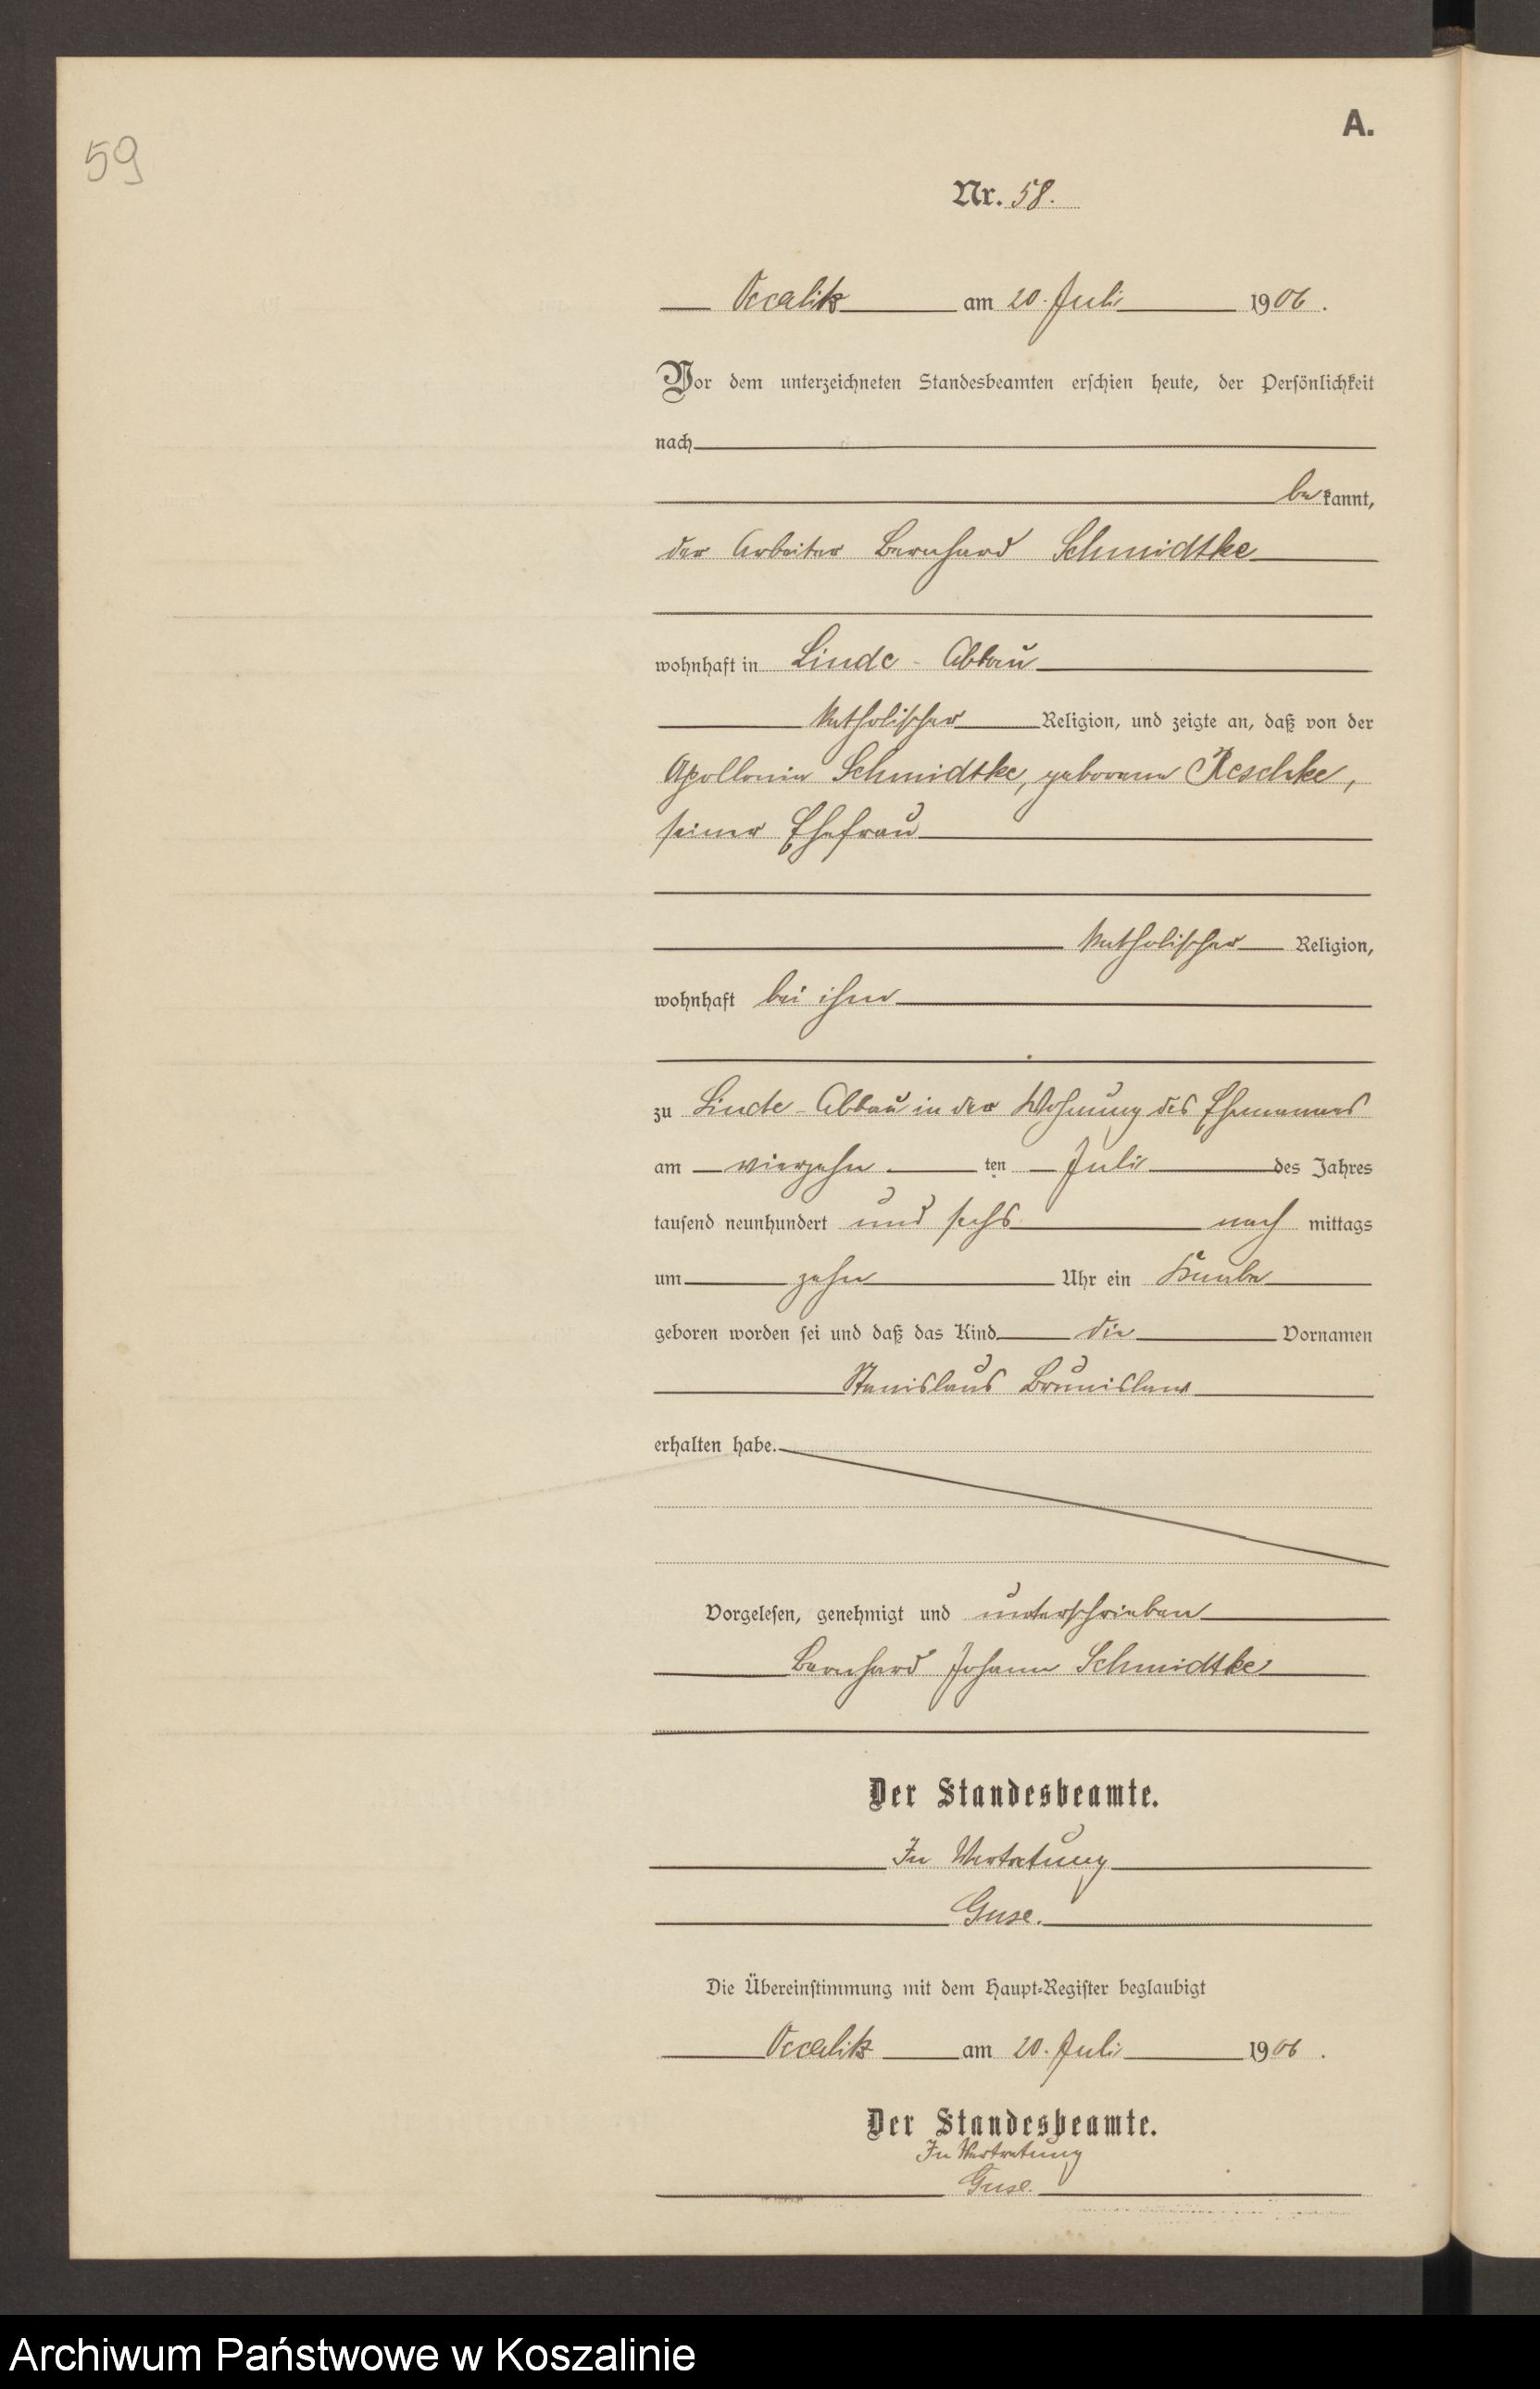 59
A.
Nr. 58.
Occalitz am 20. Juli 1906.
Vor dem unterzeichneten Standesbeamten erschien heute, der Persönlichkeit
nach
bekannt,
der Arbeiter Bernhard Schmidtke
wohnhaft in Linde - Abbau
katholischer Religion, und zeigte an, daß von der
Apollonia Schmidtke, geborene Reschke,
seiner Ehefrau
katholischer Religion,
wohnhaft bei ihm
zu Linde - Abbau in der Wohnung des Ehemannes
am vierzehn ten Juli des Jahres
tausend neunhundert und sechs nach mittags
um zehn Uhr ein Knabe
geboren worden sei und daß das Kind die Vornamen
Stanislaus Brunislaw
erhalten habe.
Vorgelesen, genehmigt und unterschrieben
Bernhard Johann Schmidtke
Der Standesbeamte.
In Vertretung
Guse.
Die Übereinstimmung mit dem Haupt-Register beglaubigt
Occalitz am 20. Juli 1906.
Der Standesbeamte.
In Vertretung
Guse.
Archiwum Państwowe w Koszalinie